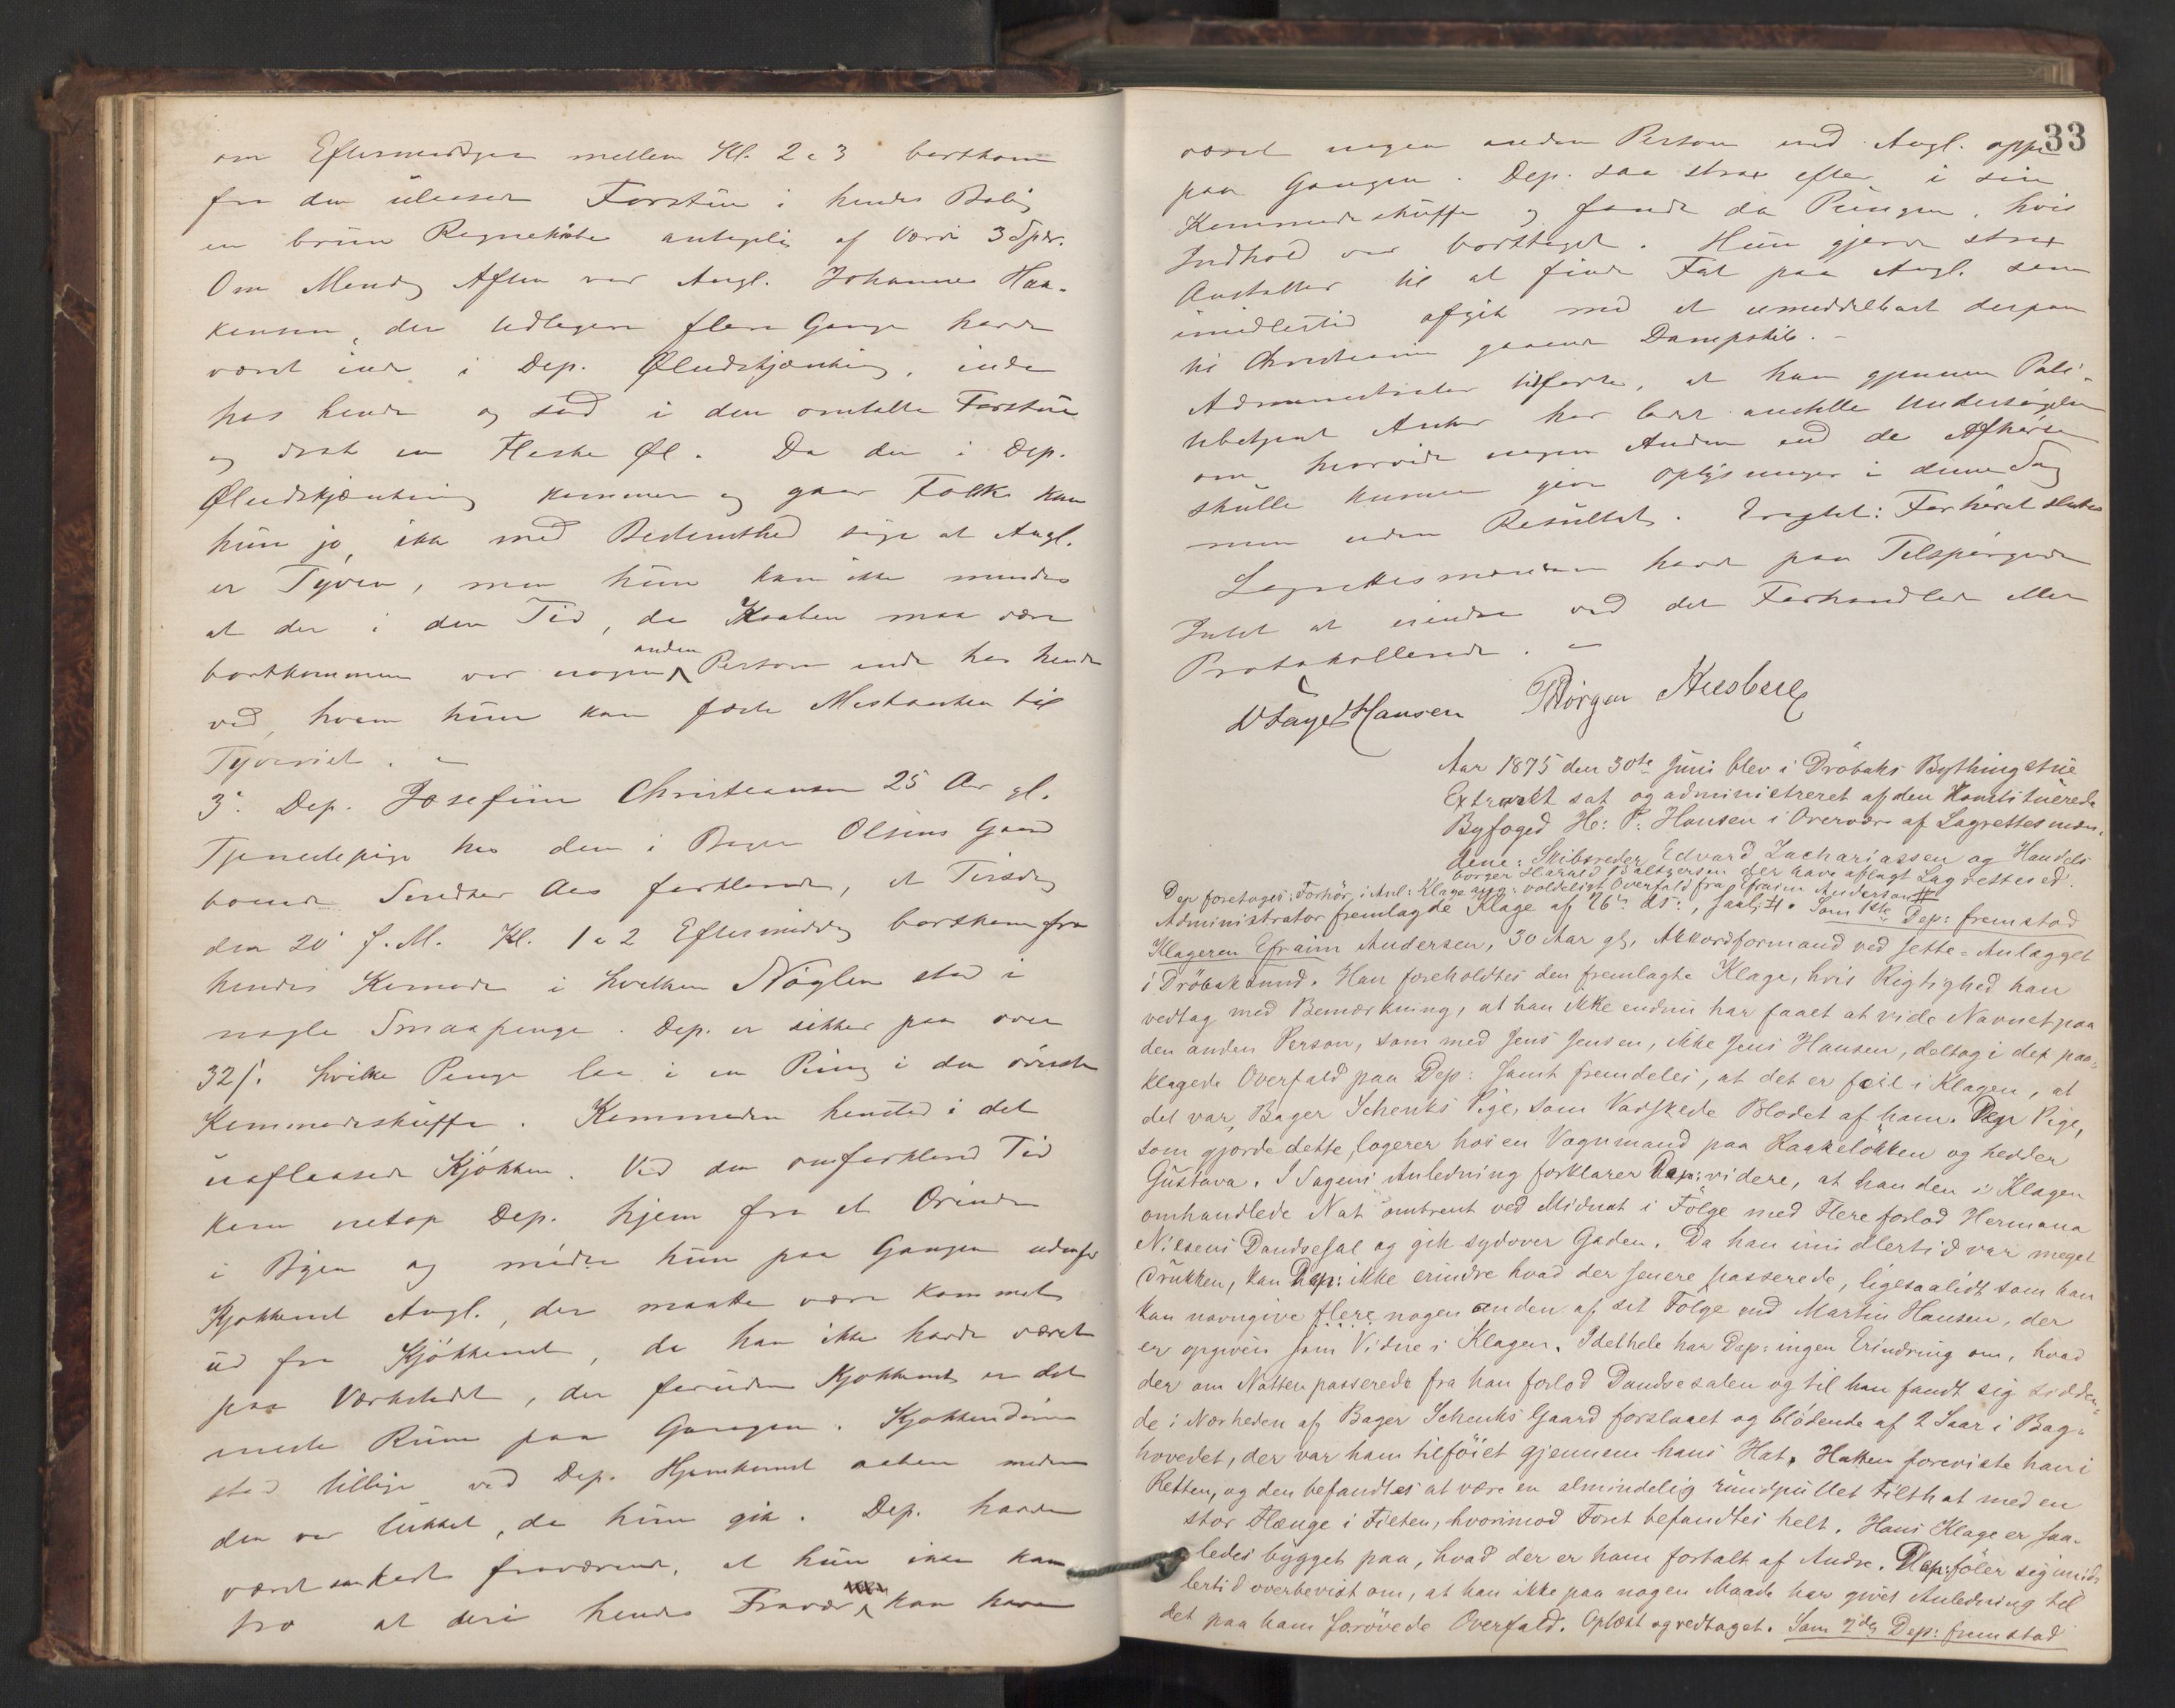 om Eftermiddagen mellem Kl. 2 a 3 bortkom
fra den ulaasede Forstue i hendes Bolig
en brun Regnekaabe antagelig af Værdi 3 Spdr.
Om Mandag Aften var Angl. Johannes Haa-
kensen, der tidligere flere Gange havde
været inde i Dep. Øludskjænkning, inde
hos hende og sad i den omtalte Forstue
og drak en Flaske Øl. Da der i Dep.
Øludskjænkning kommer og gaar Folk kan
hun jo ikke med Bestemthed sige at Angl.
er Tyven, men hun kan ikke mindes
at der i den Tid, da Kaaben maa være
bortkommen var nogen anden Person inde hos hende
ved, hvem hun kan fæste Mistanken til
Tyveriet. –
3. Dep. Josefine Christiansen 25 Aar gl.
Tjenestepige hos den i Olsens Gaard
boende Snedker Aas forklarede, at Tirsdag
den 20 f. M. Kl. 1 a 2 Eftermiddag bortkom fra
hendes Komode i hvilken Nøglen stod i
nogle Smaapenge. Dep. er sikker paa over
32 /. hvilke Penge laa i en Pung i den øverste
Kommodeskuffe. Kommoden henstod i det
uaflaasede Kjøkken. Ved den omforklarede Tid
kom netop Dep. hjem fra et Ærinde
i Byen og mødte hun paa Gangen udenfor
Kjøkkenet Angl., der maatte være kommet
ud fra Kjøkkenet, da han ikke havde været
paa Værkstedet, der foruden Kjøkkenet er det
eneste Rum paa Gangen. Kjøkkendøren
stod tillige ved Dep. Hjemkomst aaben medens
den var lukket, da hun gik. Dep. havde
været saa kort fraværende, at hun ikke kan
tro at der i hendes Fravær kan have
33
været nogen anden Person end Angl. oppe
paa Gangen. Dep. saa strax efter i sin
Kommodeskuffe og fandt da Pungen, hvis
Indhold var borttaget. Hun gjorde strax
Anstalter til at finde Fat paa Angl. som
imidlertid afgik med et umiddelbart derpaa
til Christiania gaaende Dampskib. –
Administrator tilførte, at han gjennem Poli-
tibetjent Anker har ladet anstille Undersøgelser
om hvorvidt nogen Anden end de Afhørte
skulle kunne give Oplysninger i denne Sag
men uden Resultat. Eragtet: Forhøret sluttes
Lagrettesmændene havde paa Tilspørgende
Intet at erindre ved det Forhandlede eller
Protokollerede. –
Hansen Thorgen
Aar 1875 den 30te Juni blev i Drøbaks Bythingstue
Extraret sat og administreret af den Konstituerede
Byfoged H: P: Hansen i Overvær af Lagrettesmæn-
dene: Skibsreder Edvard Zachariassen og Handels
borger Harald Baltzersen der have aflagt Lagrettesed.
Der foretoges: Forhør i Anl: Klage ang: voldeligt Overfald fra Efraim Andersen #
Administrator fremlagde Klage af 26de ds:, saal: #. Som 1ste Dep: fremstod
Klageren Efraim Andersen, 30 Aar gl, Akkordformand ved Jette-Anlægget
i Drøbaksund. Han foreholdtes den fremlagte Klage, hvis Rigtighed han
vedtog med Bemærkning, at han ikke endnu har faaet at vide Navnet paa
den anden Person, som med Jens Jensen, ikke Jens Hansen, deltog i det paa-
klagede Overfald paa Dep: samt fremdeles, at det er feil i Klagen, at
det var Bager Schenks Pige, som vadskede Blodet af ham. Den Pige,
som gjorde dette, logerer hos en Vognmand paa Raakeløkken og hedder
Gustava. I Sagens Anledning forklarer Dep: videre, at han den i Klagen
omhandlede Nat omtrent ved Midnat i Følge med Flere forlod Hermana
Nilsens Dandsesal og gik sydover Gaden. Da han imidlertid var meget
drukken, kan Dep: ikke erindre hvad der senere passerede, ligesaalidt som han
kan navngive flere nogen anden af sit Følge end Martin Hansen, der
er opgiven som Vidne i Klagen. Idethele har Dep: ingen Erindring om, hvad
der om Natten passerede fra han forlod Dandsesalen og til han fandt sig sidden-
de i Nærheden af Bager Schenks Gaard forslaaet og blødende af 2 Saar i Bag-
hovedet, der var ham tilføiet gjennem hans Hat. Hatten foreviste han i
Retten, og den befandtes at være en almindelig rundpullet Filthat med en
stor Flænge i Filten, hvorimod Foret befandtes helt. Hans Klage er saa-
ledes bygget paa, hvad der er ham fortalt af Andre. Dep: føler sig imid-
lertid overbevist om, at han ikke paa nogen Maade har givet Anledning til
det paa ham forøvede Overfald. Oplæst og vedtaget. Som 2den Dep: fremstod